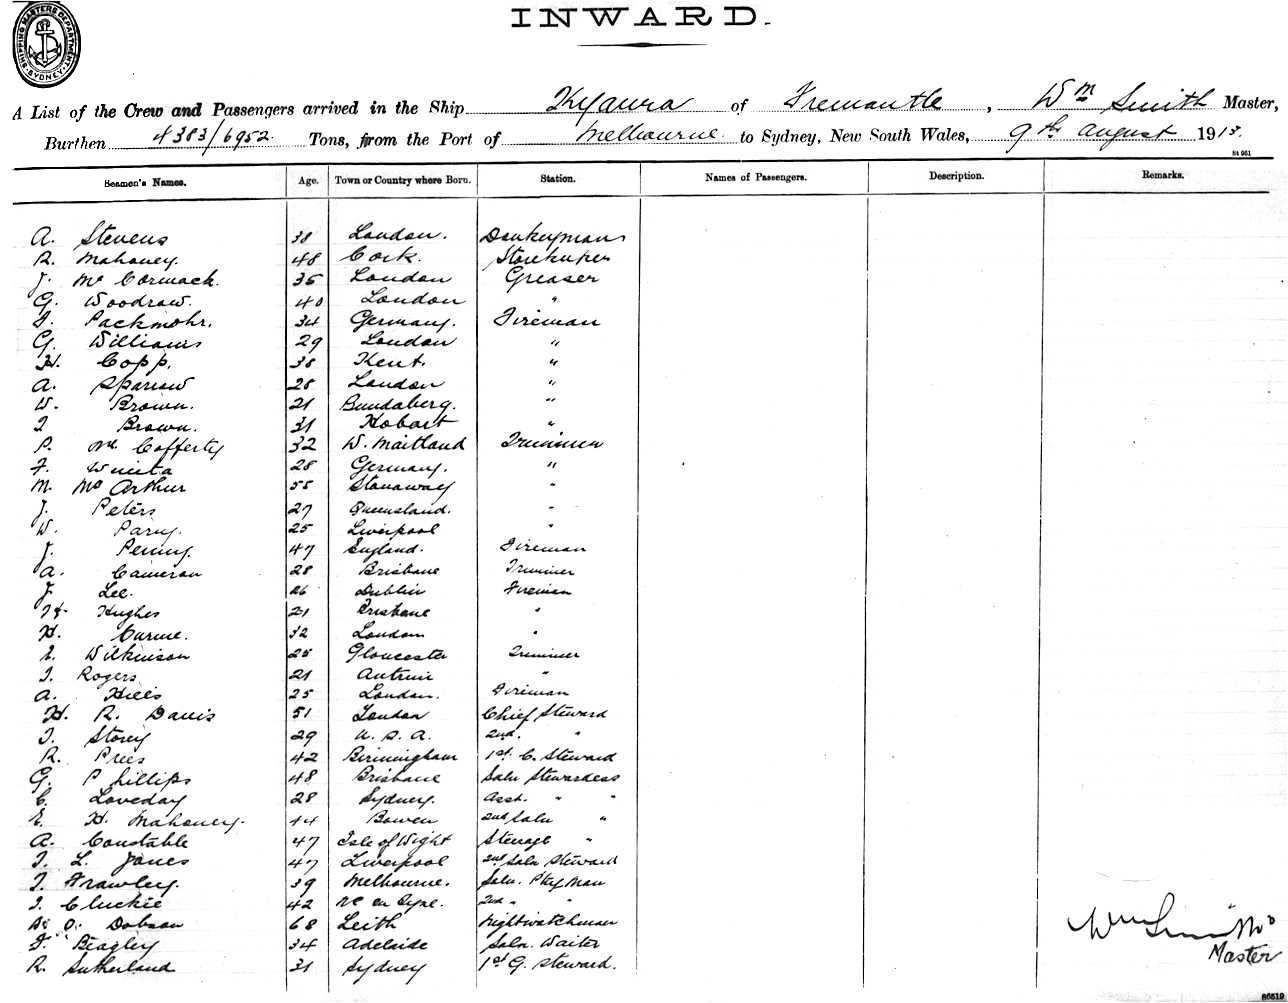 SHIPPING MASTERS DEPARTMENT. SYDNEY.
INWARD.
A List of the Crew and Passengers arrived in the Ship Kyarra of Fremantle, Wm Smith Master,
Burthen 4383/6952 Tons, from the Port of Melbourne to Sydney, New South Wales, 9th August 191
Seamen's Names. Age. Town or Country where Born. Station. Names of Passengers. Description. Remarks.
A. Stevens 38 London. Donkeyman
R. Mahoney. 48 Cork. Storekeeper
J. Mc Cormack. 35 London Greaser
G. Woodrow. 40 London "
Packmohr. 34 Germany. Fireman
G. Williams 29 London "
H. Copp. 38 Kent. "
A. Sparrow 28 London "
W. Brown. 21 Bundaberg. "
Brown. 31 Hobart "
P. Mc Cafferty 32 W. Maitland Trimmer
F. 28 Germany. "
M. Mc Arthur 55 "
J. Peters 27 Queensland. "
W. Parry. 25 Liverpool "
J. Penny. 47 England. Fireman
A. Cameron 28 Brisbane Trimmer
J. Lee. 26 Dublin Fireman
Hughes 21 Brisbane "
H. 32 London "
Wilkinson 25 Gloucester Trimmer
Rogers 21 Antrim "
A. Hills 25 London. Fireman
H. R. Davis 51 London Chief Steward
Storey 29 U. S. A. 2nd. "
R. Prees 42 Birmingham 1st. C. Steward
G. Phillips 48 Brisbane Saln Stewardess
C. Loveday 28 Sydney. Asst. " "
E. H. Mahoney. 44 Bowen 2nd Saln "
A. Constable 47 Isle of Wight Steerage "
L. Jones 47 Liverpool 2nd Saln Steward
Frawley. 39 Melbourne. Saln. Ptry Man
Cluckie 42 N/C on Tyne. 2nd " "
O. Dobson 68 Leith Nightwatchman
Beagley 34 Adelaide Saln. Waiter
R. Sutherland 31 Sydney 1st G. Steward.
Wm Smith
Master